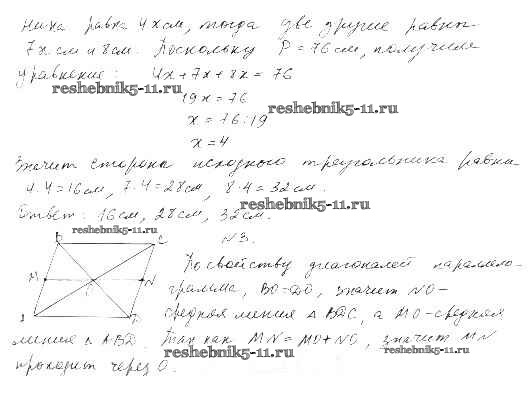 нина равна 4x см, тогда две другие равны
7x см и 8x см. Поскольку P = 76 см, получили
уравнение: 4x + 7x + 8x = 76
reshebnik5-11.ru
19x = 76
reshebnik5-11.ru
x = 76 : 19
x = 4
Значит стороны исходного треугольника равны
4·4=16см, 7·4=28см, 8·4=32см.
reshebnik5-11.ru
Ответ: 16см, 28см, 32см.
reshebnik5-11.ru
N 3.
B C
По свойству диагоналей параллело-
M N
грамма, BO=DO, значит NO-
средняя линия △ BDC, а MO-средняя
линия △ ABD. Так как MN = MO + NO, значит MN
reshebnik5-11.ru
reshebnik5-11.ru
проходит через O.